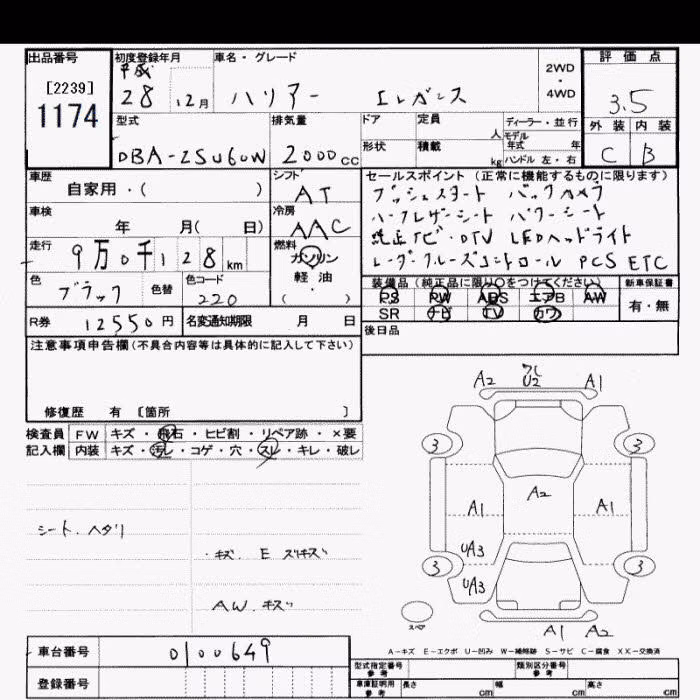 出品番号 初度登録年月 車名・グレード 評価点
[2239] 平成 2WD
1174 28 12月 ハリアー エレガンス ・ 3.5
4WD
型式 排気量 ドア 定員 ディーラー・並行 外装 内装
人 モデル年式 年
DBA-ZSU60W 2000cc 形状 積載 kg ハンドル 左・右 C B
車歴 シフト セールスポイント(正常に機能するものに限ります)
自家用・( ) AT プッシュスタート バックカメラ
車検 冷房 ハーフレザーシート パワーシート
年 月( 日) AAC 純正ナビ・DTV LEDヘッドライト
走行 9万0千128km 燃料 ガソリン レーダークルーズコントロール PCS ETC
色 色替 色コード 軽・油 装備品(純正品に限り○をつけてください) 新車保証書
ブラック 220 ( ) PS PW ABS エアB AW 有・無
R券 12550円 名変通知期限 月 日 SR ナビ TV カワ
注意事項申告欄(不具合内容等は具体的に記入して下さい) 後日品
修復歴 有 [箇所 ]
検査員 FW キズ・飛石・ヒビ割・リペア跡・×要
記入欄 内装 キズ・汚レ・コゲ・穴・スレ・キレ・破レ
A2 ワレ U2 A1
3 3
A2
A1 A1
シート・ヘタリ
UA3
・キズ E スリキズ
3 3
UA3
AW キズ
スペア
A1 A2
A-キズ E-エクボ U-凹み W-補修跡 S-サビ C-腐食 XX-交換済
車台番号 0100649
型式指定番号 参考 類別区分番号 参考
登録番号 車庫証明用 参考 長さ cm 幅 cm 高さ cm